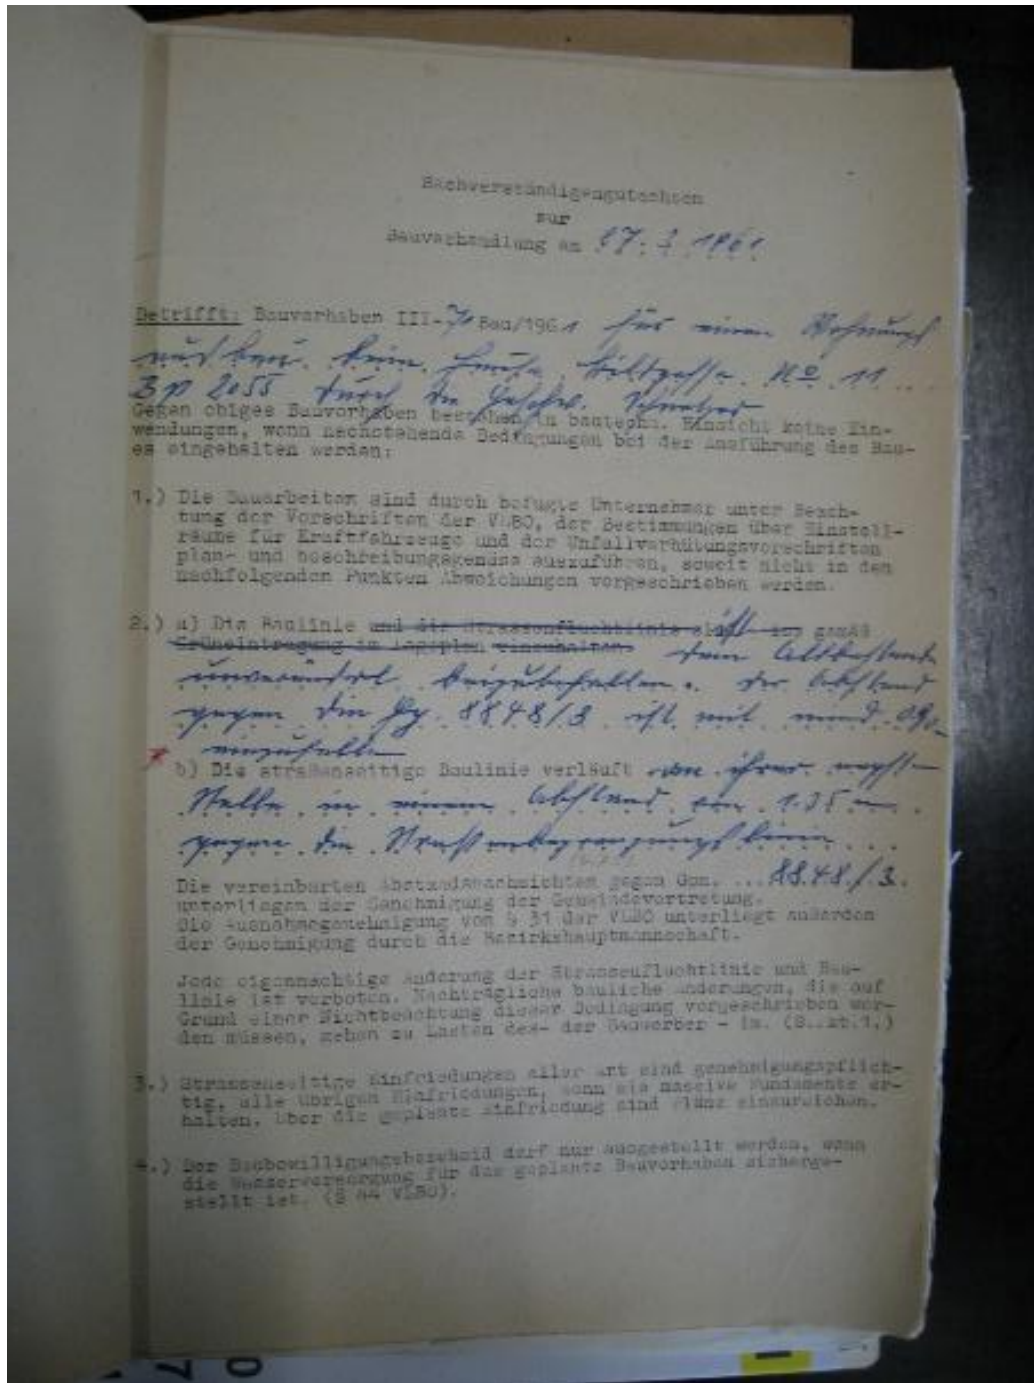 Sachverständigengutachten
zur
Bauverhandlung am 27. 3. 1961
Betrifft: Bauvorhaben III- Bau/1961 für einen Wohnungs
ausbau beim Hause No 11
Bp 2055 durch die Geschw.
Gegen obiges Bauvorhaben bestehen in bautechn. Hinsicht keine Ein-
wendungen, wenn nachstehende Bedingungen bei der Ausführung des Bau-
es eingehalten werden:
1.) Die Bauarbeiten sind durch befugte Unternehmer unter Beach-
tung der Vorschriften der VLBO, der Bestimmungen über Einstell-
räume für Kraftfahrzeuge und der Unfallverhütungsvorschriften
plan- und beschreibungsgemäss auszuführen, soweit nicht in den
nachfolgenden Punkten Abweichungen vorgeschrieben werden.
2.) a) Die Baulinie und die Strassenfluchtlinie ist gemäß
Grüneintragung im Lageplan einzuhalten dem Altbestande
unverändert beizubehalten. Der Abstand
gegen die Gp. 8848/3 ist mit rund
einzuhalten
b) Die straßenseitige Baulinie verläuft an ihrer
Stelle in einem Abstand von 1.35 m
gegen die Straßenbegrenzungslinie
Die vereinbarten Abstandsnachsichten gegen Gpn. ...8848/3.
unterliegen der Genehmigung der Gemeindevertretung.
Die Ausnahmegenehmigung von § 31 der VLBO unterliegt außerdem
der Genehmigung durch die Bezirkshauptmannschaft.
Jede eigenmächtige Änderung der Strassenfluchtlinie und Bau-
linie ist verboten. Nachträgliche bauliche Änderungen, die auf
Grund einer Nichtbeachtung dieser Bedingung vorgeschrieben wer-
den müssen, gehen zu Lasten des- der Bauwerber - in.
3.) Strassenseitige Einfriedungen aller Art sind genehmigungspflich-
tig, alle übrigen Einfriedungen, wenn sie massive Fundamente er-
halten. Über die geplante Einfriedung sind Pläne einzureichen.
4.) Der Baubewilligungsbescheid darf nur ausgestellt werden, wenn
die Wasserversorgung für das geplante Bauvorhaben sicherge-
stellt ist. (§ 44 VLBO).